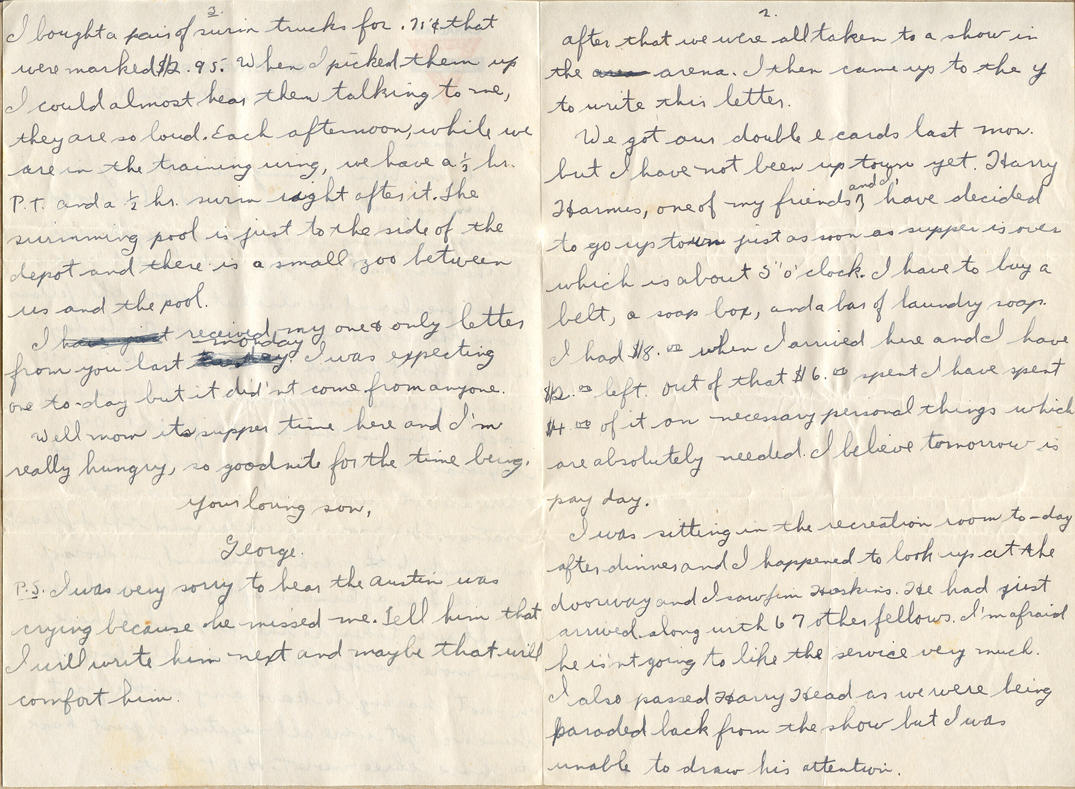 2.
after that we were all taken to a show in
the arena. I then came up to the Y
to write this letter.
We got our double e cards last mon.
but I have not been up town yet. Harry
Harmes, one of my friends, and I have decided
to go up town just as soon as supper is over
which is about 5 "o' clock. I have to buy a
belt, a soap box, and a bar of laundry soap.
I had $8.00 when I arrived here and I have
$2.00 left. out of that $6.00 spent I have spent
$4.00 of it on necessary personal things which
are absolutely needed. I believe tomorrow is
pay day.
I was sitting in the recreation room to-day
after dinner and I happened to look up at the
doorway and I saw Jim Haskins. He had just
arrived along with 67 other fellows. I'm afraid
he is'nt going to like the service very much.
I also passed Harry Head as we were being
paraded back from the show but I was
unable to draw his attention.
3.
I bought a pair of swim trucks for .75¢ that
were marked $2.95. When I picked them up
I could almost hear them talking to me,
they are so loud. Each afternoon, while we
are in the training wing, we have a ½ hr.
P.T. and a ½ hr. swim right after it. The
swimming pool is just to the side of the
depot and there is a small zoo between
us and the pool.
I have just received my one & only letter
from you last monday. I was expecting
one to-day but it did'nt come from anyone.
Well mom its supper time here and I'm
really hungry, so goodnite for the time being.
Your loving son,
George.
P.S. I was very sorry to hear the austin was
crying because he missed me. Tell him that
I will write him next and maybe that will
comfort him.